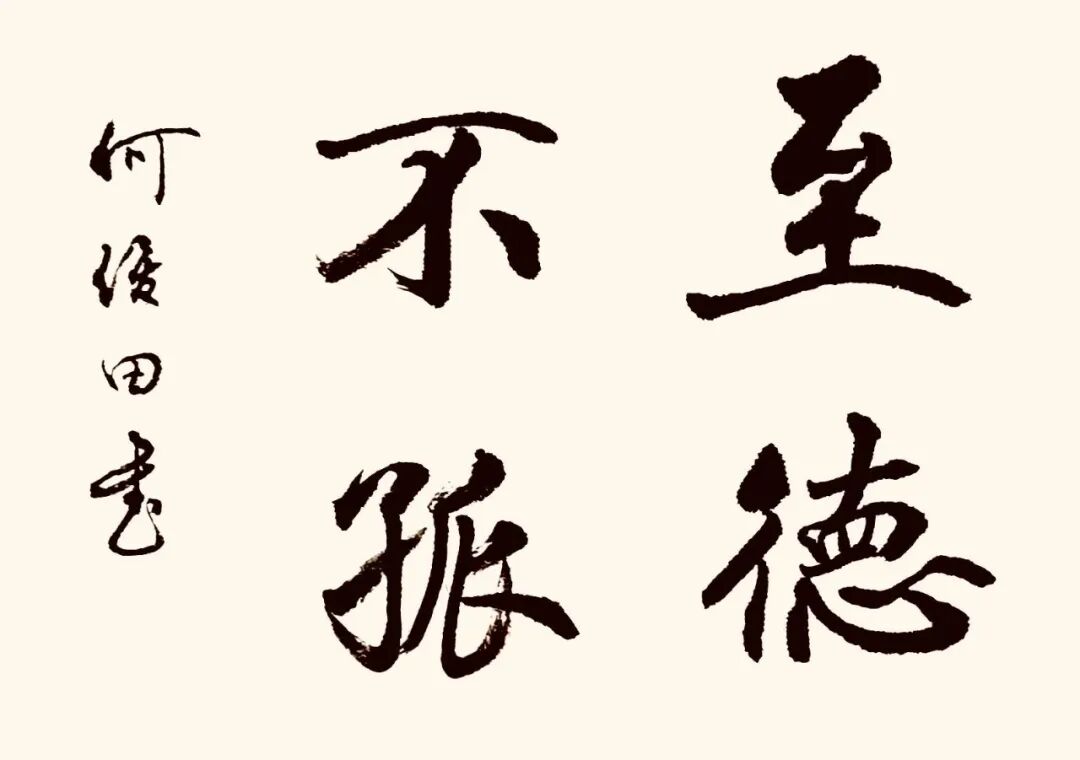 至德
不孤
何俊田书